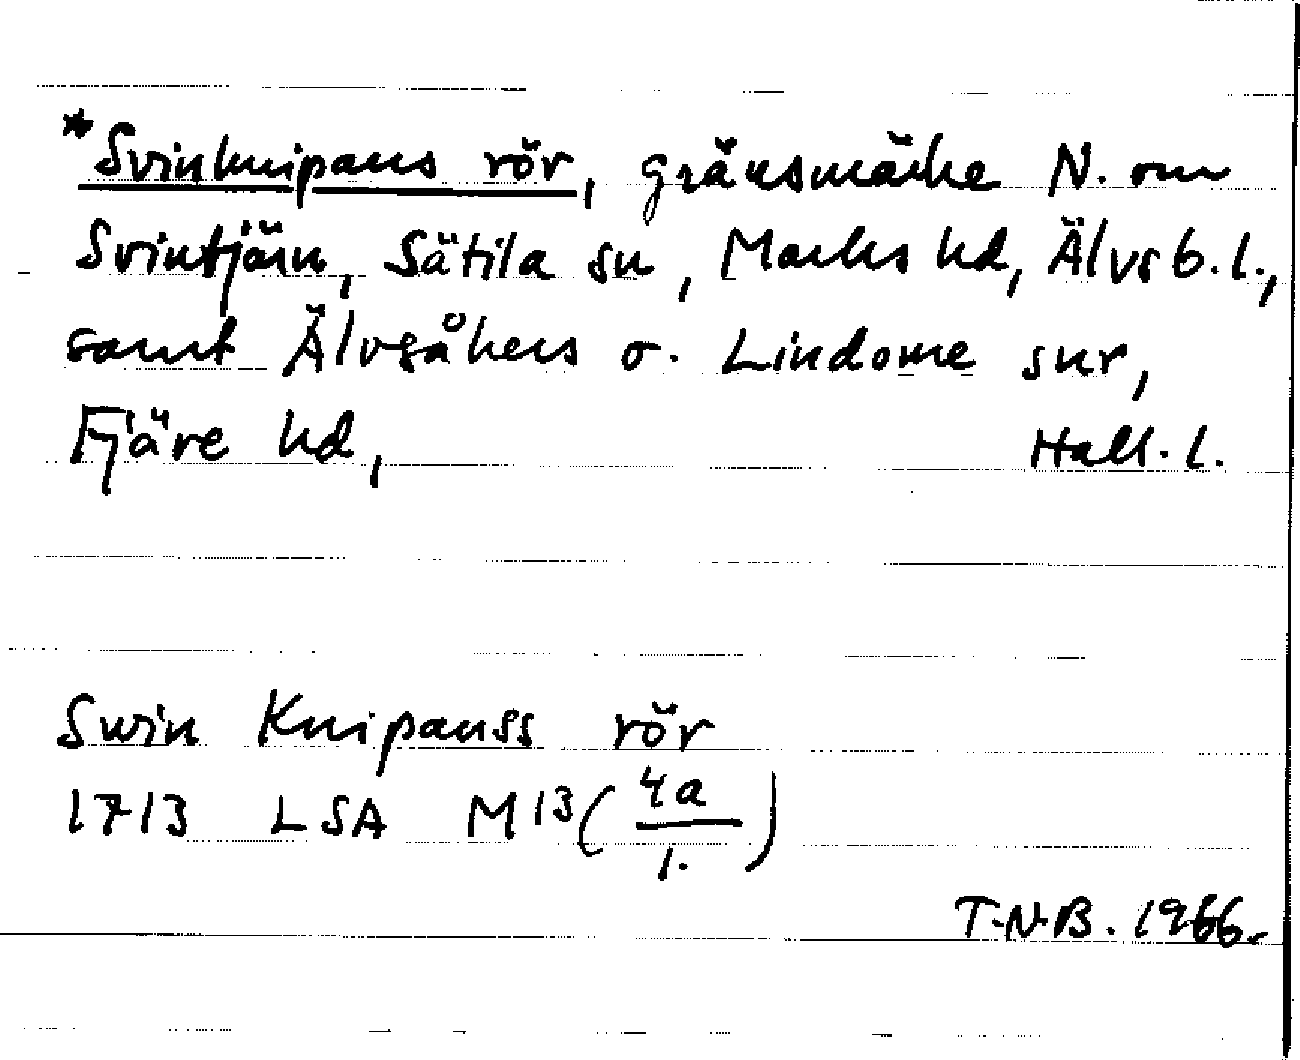 *Svinknipans rör, gränsmärke N. om
Svintjärn, Sätila sn, Marks hd, Älvsb. l.,
samt Älvsåkers o. Lindome snr,
Fjäre hd, Hall. l.
Swin Knipanss rör
1713 LSA M13 (4a/1.)
T.N.B. 1966.